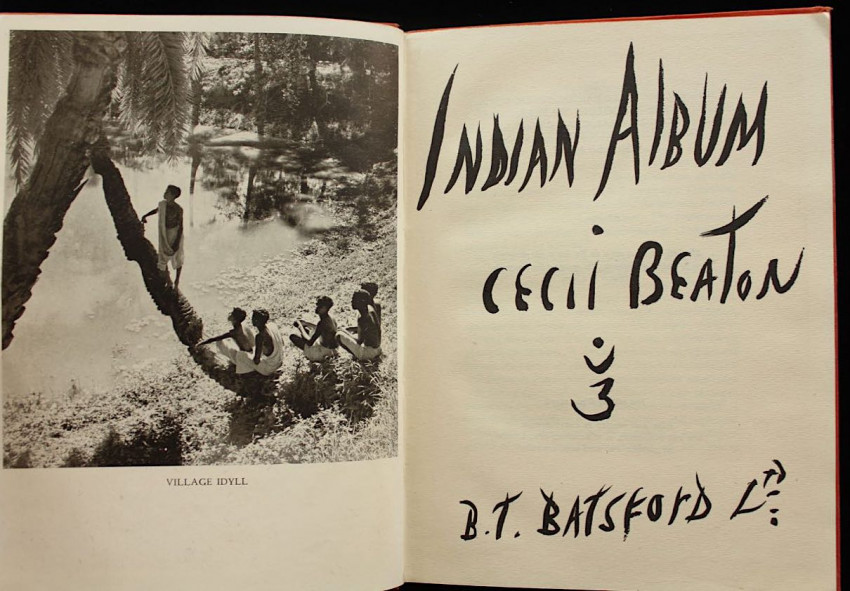 VILLAGE IDYLL
INDIAN ALBUM
CECIL BEATON
B.T. BATSFORD LTD